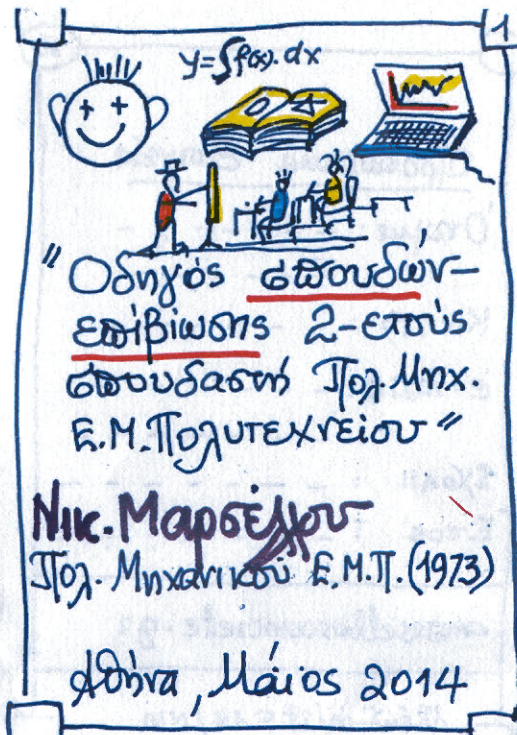 1
y=∫f(x).dx
"Οδηγός σπουδών-
επιβίωσης 2-ετούς
σπουδαστή Πολ.Μηχ.
Ε.Μ.Πολυτεχνείου"
Νικ.Μαρσέλλου
Πολ. Μηχανικού Ε.Μ.Π.(1973)
Αθήνα, Μάϊος 2014